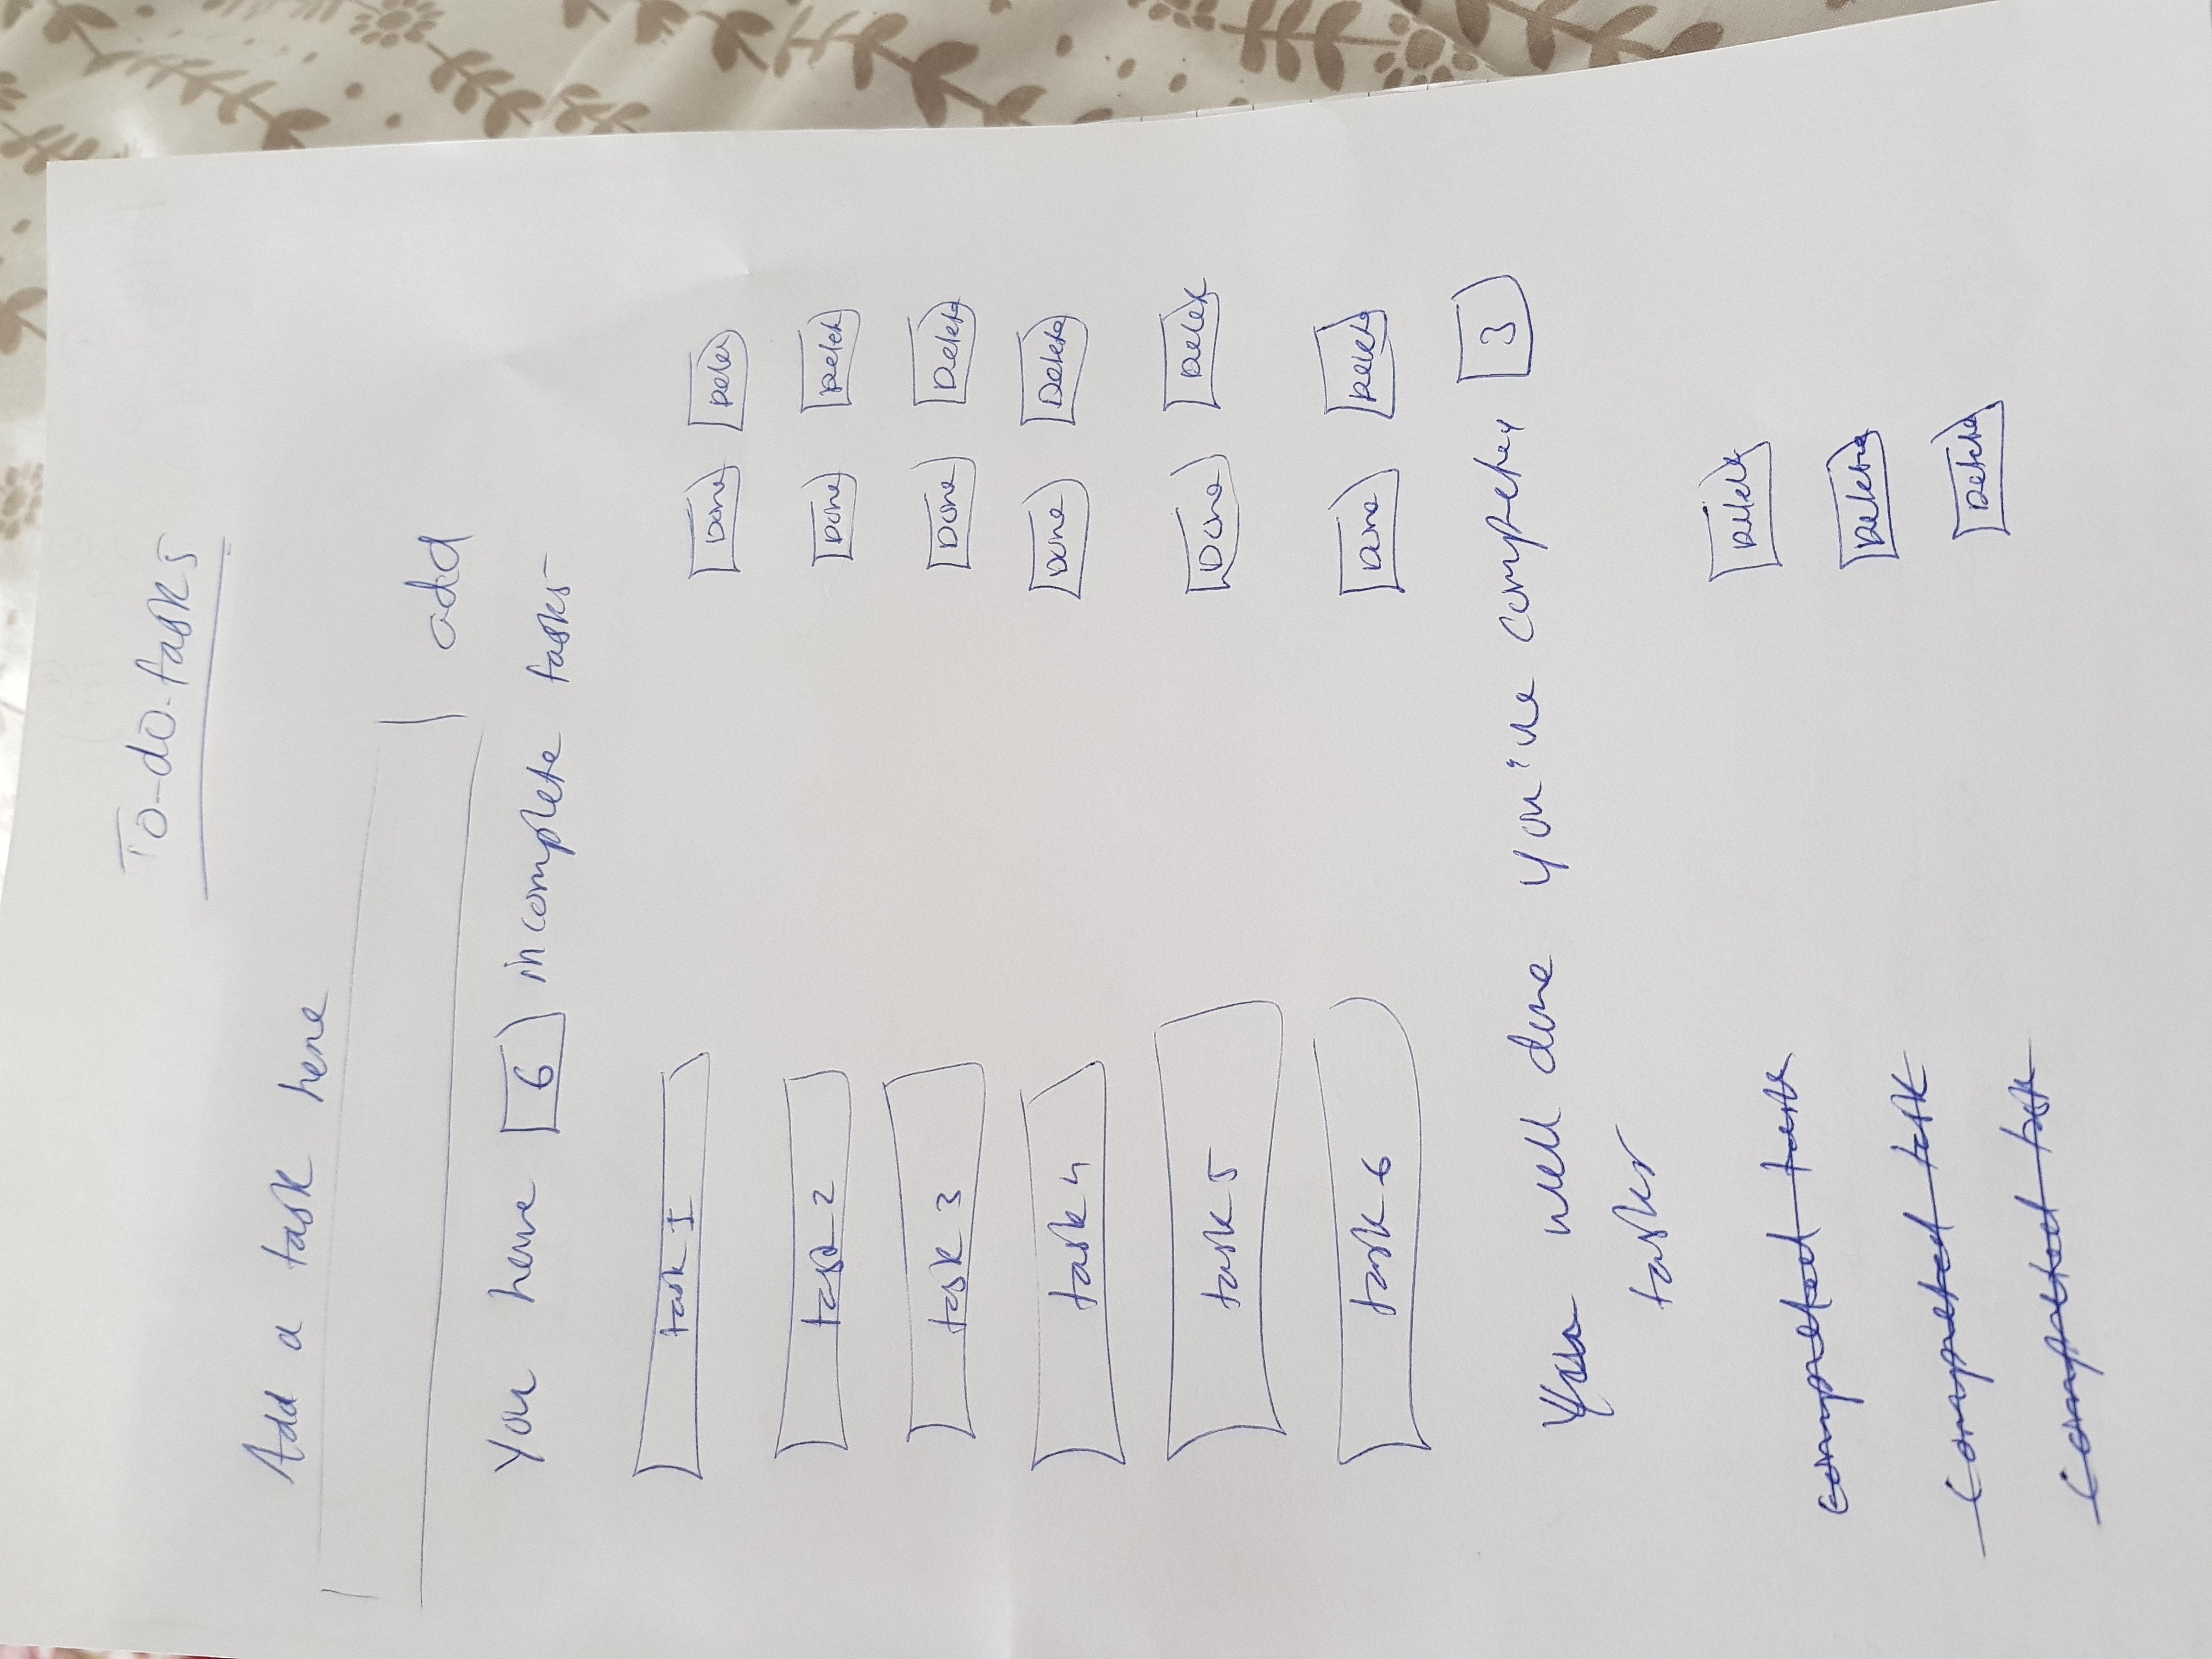 To-do-tasks
Add a task here
add
You have 6 incomplete tasks
task 1 Done Delete
task 2 Done Delete
task 3 Done Delete
task 4 Done Delete
task 5 Done Delete
task 6 Done Delete
You well done you've completed 3
tasks
completed task Delete
Completed task Delete
Completed task Delete